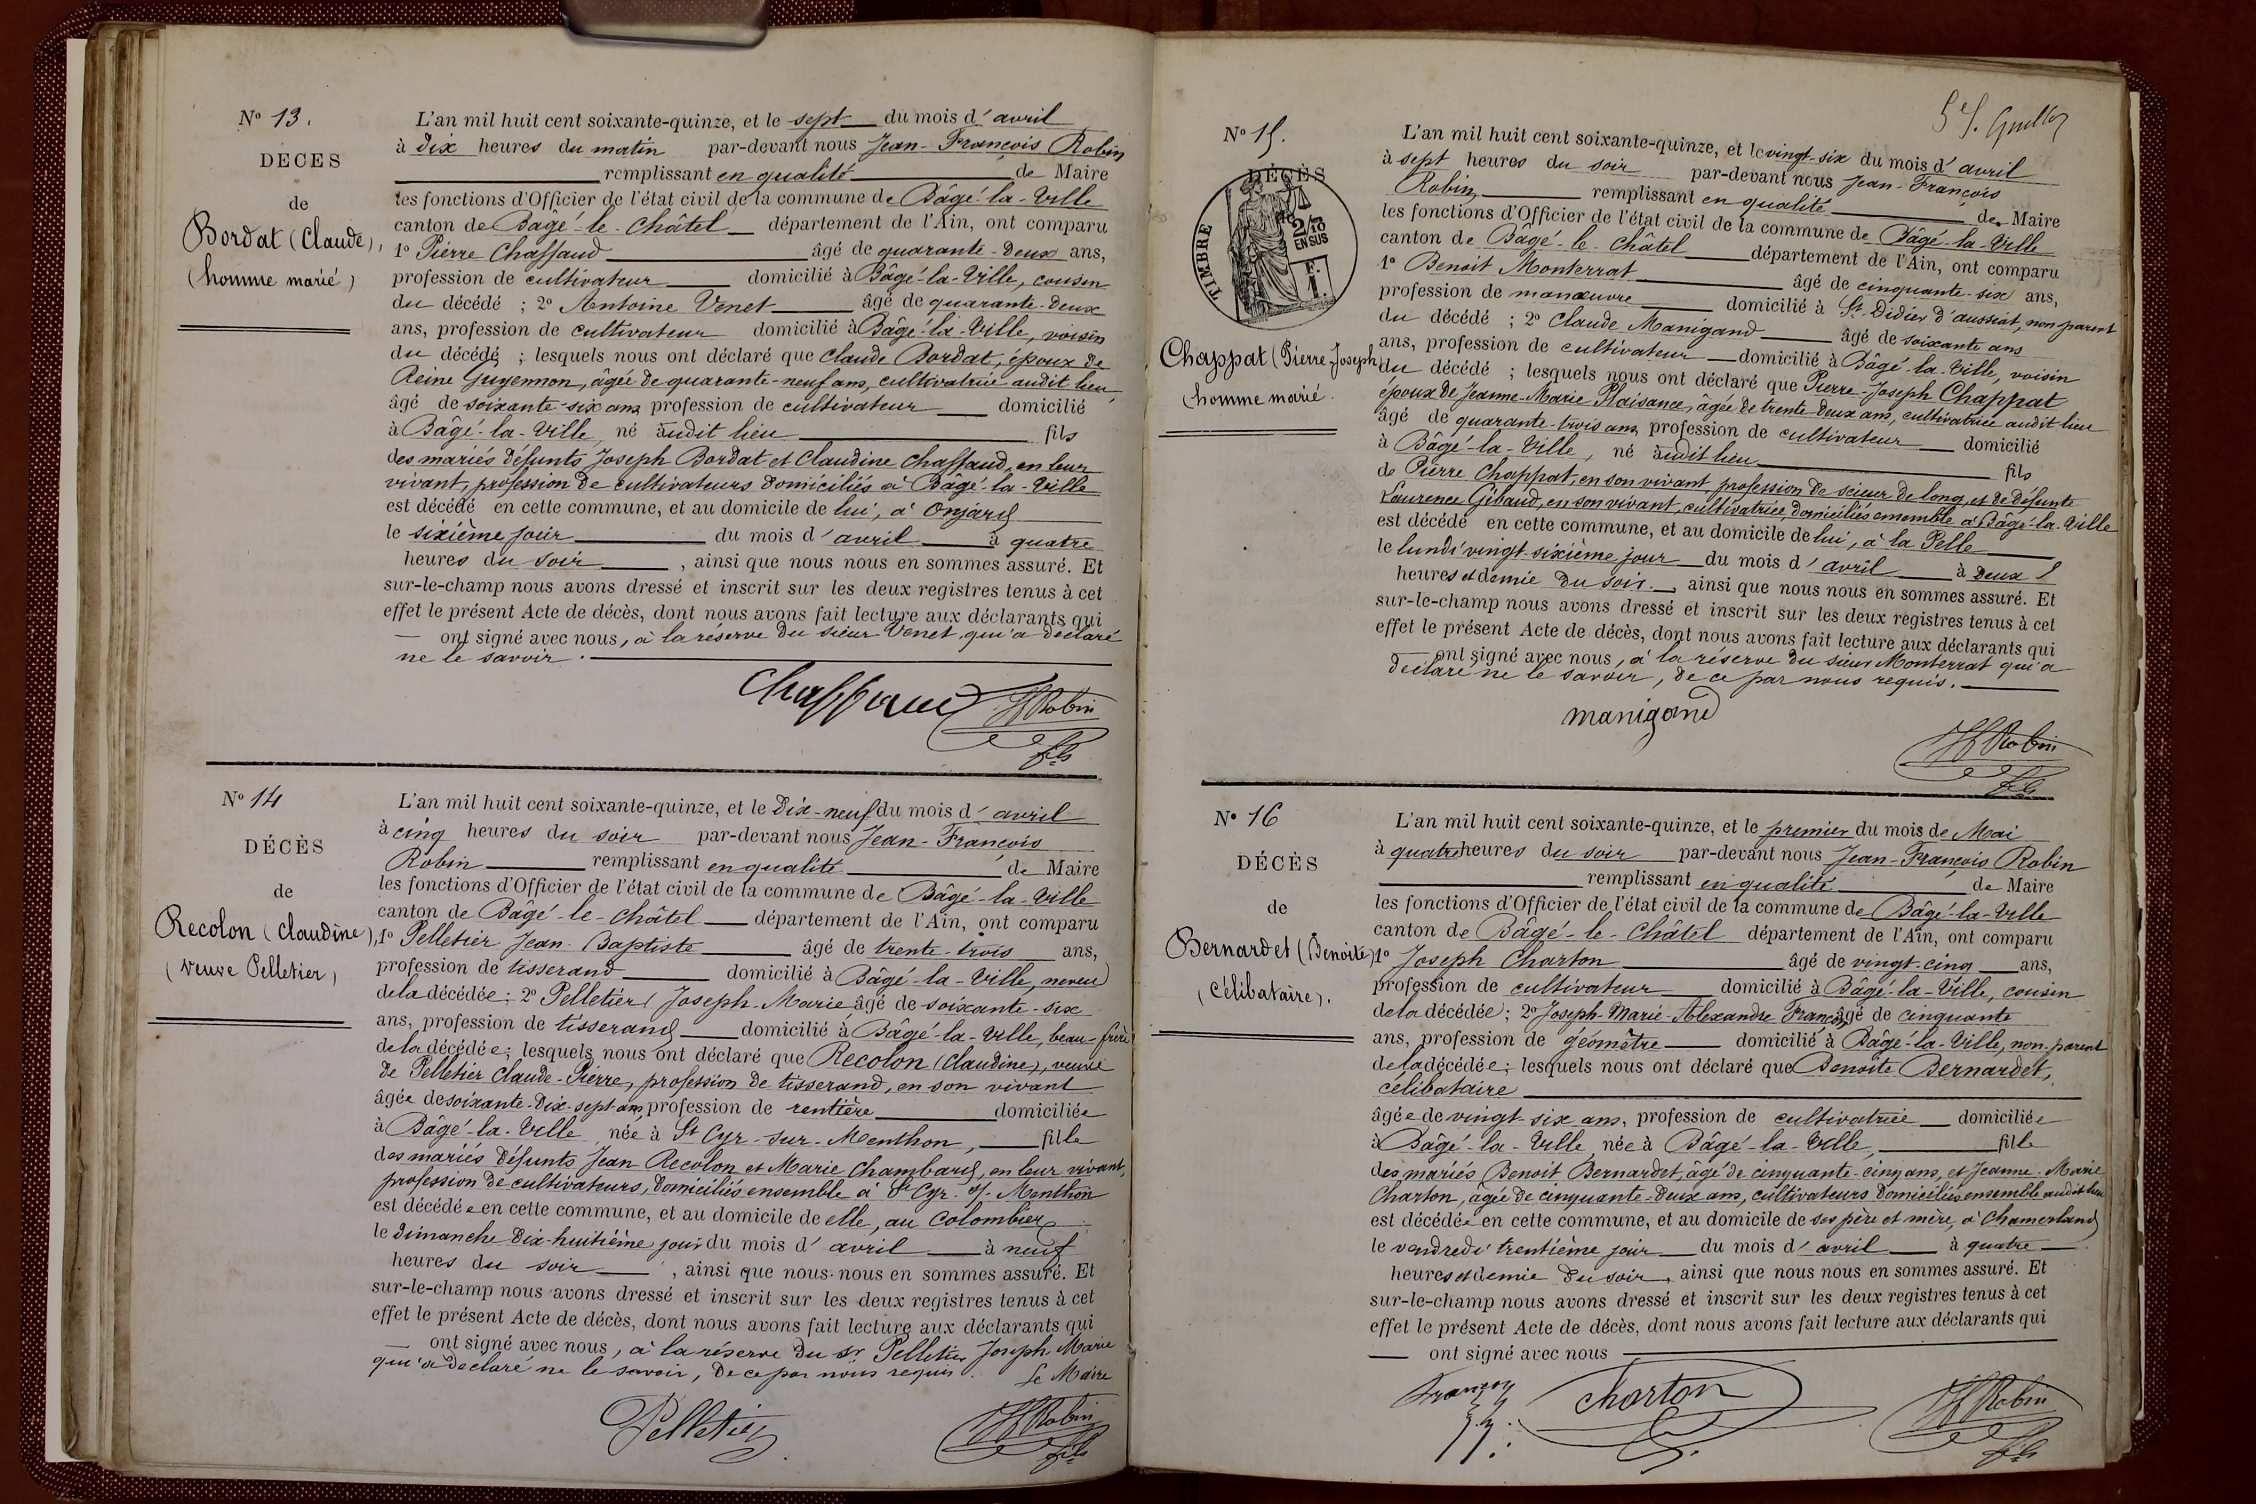 Nº 13.
DÉCES
de
Bordat (Claude),
(homme marié)
L'an mil huit cent soixante-quinze, et le sept du mois d'avril
à Dix heures du matin par-devant nous Jean-François Robin
remplissant en qualité de Maire
les fonctions d'Officier de l'état civil de la commune de Bâgé-la-Ville
canton de Bâgé-le-Châtel département de l'Ain, ont comparu
1º Pierre Chaffaud âgé de quarante-Deux ans,
profession de cultivateur domicilié à Bâgé-la-Ville, cousin
du décédé ; 2º Antoine Venet âgé de quarante-Deux
ans, profession de cultivateur domicilié à Bâgé-la-Ville, voisin
du décédé ; lesquels nous ont déclaré que Claude Bordat, époux de
Reine Guyennon, âgée de quarante-neuf ans, cultivatrice audit lieu,
âgé de soixante-six ans profession de cultivateur domicilié
à Bâgé-la-Ville, né audit lieu fils
des mariés défunts Joseph Bordat et Claudine Chaffaud, en leur
vivant, profession de cultivateurs domiciliés à Bâgé-la-Ville
est décédé en cette commune, et au domicile de lui, à Onjard
le sixième jour du mois d'avril à quatre
heures du soir, ainsi que nous nous en sommes assuré. Et
sur-le-champ nous avons dressé et inscrit sur les deux registres tenus à cet
effet le présent Acte de décès, dont nous avons fait lecture aux déclarants qui
ont signé avec nous, à la réserve du sieur Venet qui a déclaré
ne le savoir.
Chaffaud JfRobin
fils
Nº 14
DÉCÈS
de
Recolon (Claudine),
(Veuve Pelletier)
L'an mil huit cent soixante-quinze, et le Dix-neuf du mois d'avril
à cinq heures du soir par-devant nous Jean-François
Robin remplissant en qualité de Maire
les fonctions d'Officier de l'état civil de la commune de Bâgé-la-Ville
canton de Bâgé-le-Châtel département de l'Ain, ont comparu
1º Pelletier Jean-Baptiste âgé de trente-trois ans,
profession de tisserand domicilié à Bâgé-la-Ville, neveu
de la décédée ; 2º Pelletier Joseph-Marie âgé de soixante-six
ans, profession de tisserand domicilié à Bâgé-la-Ville, beau-frère
de la décédée ; lesquels nous ont déclaré que Recolon (Claudine), veuve
de Pelletier Claude-Pierre, profession de tisserand, en son vivant
âgée de soixante-Dix-sept ans, profession de rentière domiciliée
à Bâgé-la-Ville née à St Cyr-sur-Menthon, fille
des mariés défunts Jean Recolon et Marie Chambard, en leur vivant,
profession de cultivateurs, domiciliés ensemble à St Cyr-s/-Menthon
est décédée en cette commune, et au domicile de elle, au Colombier
le Dimanche Dix-huitième jour du mois d'avril à neuf
heures du soir, ainsi que nous nous en sommes assuré. Et
sur-le-champ nous avons dressé et inscrit sur les deux registres tenus à cet
effet le présent Acte de décès, dont nous avons fait lecture aux déclarants qui
ont signé avec nous, à la réserve du sr Pelletier Joseph Marie
qui a déclaré ne le savoir, de ce par nous requis. Le Maire
Pelletier JfRobin
fils
Nº 15.
DÉCÈS
TIMBRE
2/10 EN SUS
F. 1.
Chappat (Pierre-Joseph)
(homme marié.
L'an mil huit cent soixante-quinze, et le vingt-six du mois d'avril
à sept heures du soir par-devant nous Jean-François
Robin remplissant en qualité de Maire
les fonctions d'Officier de l'état civil de la commune de Bâgé-la-Ville
canton de Bâgé-le-Châtel département de l'Ain, ont comparu
1º Benoit Monterrat âgé de cinquante-six ans,
profession de manœuvre domicilié à St-Didier d'aussiat, non parent
du décédé ; 2º Claude Manigand âgé de soixante ans
ans, profession de cultivateur domicilié à Bâgé-la-Ville, voisin
du décédé ; lesquels nous ont déclaré que Pierre-Joseph Chappat
époux de Jeanne-Marie Plaisance, âgée de trente-Deux ans, cultivatrice audit lieu
âgé de quarante-trois ans profession de cultivateur domicilié
à Bâgé-la-Ville, né audit lieu fils
de Pierre Chappat, en son vivant, profession de scieur de long, et de défunte
Laurence Gibaud, en son vivant, cultivatrice, domiciliés ensemble à Bâgé-la-Ville
est décédé en cette commune, et au domicile de lui, à la Pelle
le lundi vingt-sixième jour du mois d'avril à Deux
heures et demie du soir, ainsi que nous nous en sommes assuré. Et
sur-le-champ nous avons dressé et inscrit sur les deux registres tenus à cet
effet le présent Acte de décès, dont nous avons fait lecture aux déclarants qui
ont signé avec nous, à la réserve du sieur Monterrat qui a
déclaré ne le savoir, de ce par nous requis.
manigand
JfRobin
fils
Nº 16
DÉCÈS
de
Bernardet (Benoite)
(Célibataire).
L'an mil huit cent soixante-quinze, et le premier du mois de Mai
à quatre heures du soir par-devant nous Jean-François Robin
remplissant en qualité de Maire
les fonctions d'Officier de l'état civil de la commune de Bâgé-la-Ville
canton de Bâgé-le-Châtel département de l'Ain, ont comparu
1º Joseph Charton âgé de vingt-cinq ans,
profession de cultivateur domicilié à Bâgé-la-Ville, cousin
de la décédée ; 2º Joseph-Marie-Alexandre Françon âgé de cinquante
ans, profession de géomètre domicilié à Bâgé-la-Ville, non-parent
de la décédée ; lesquels nous ont déclaré que Benoite Bernardet,
célibataire
âgée de vingt-six ans, profession de cultivatrice domiciliée
à Bâgé-la-Ville, née à Bâgé-la-Ville, fille
des mariés Benoit Bernardet, âgé de cinquante-cinq ans, et Jeanne-Marie
Charton, âgée de cinquante-Deux ans, cultivateurs domiciliés ensemble audit lieu
est décédée en cette commune, et au domicile de ses père et mère, à Chamerland
le vendredi trentième jour du mois d'avril à quatre
heures et demie du soir, ainsi que nous nous en sommes assuré. Et
sur-le-champ nous avons dressé et inscrit sur les deux registres tenus à cet
effet le présent Acte de décès, dont nous avons fait lecture aux déclarants qui
ont signé avec nous
Françon Charton JfRobin
fils